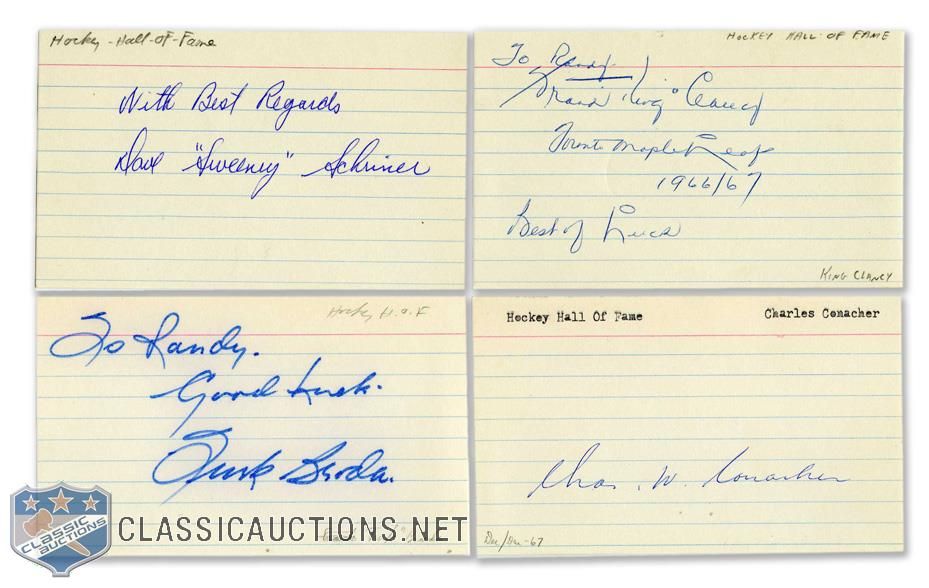 Hockey - Hall-Of-Fame
With Best Regards
Dave "Sweeney" Schriner
HOCKEY HALL OF FAME
To Randy
"King" Clancy
Toronto Maple Leafs
1966/67
Best of Luck
KING CLANCY
Hockey H.o.F
To Randy.
Good Luck.
Turk Broda.
Hockey Hall Of Fame
Charles Conacher
Chas. W. Conacher
Dec/Dec-67
CLASSIC
AUCTIONS
CLASSICAUCTIONS.NET